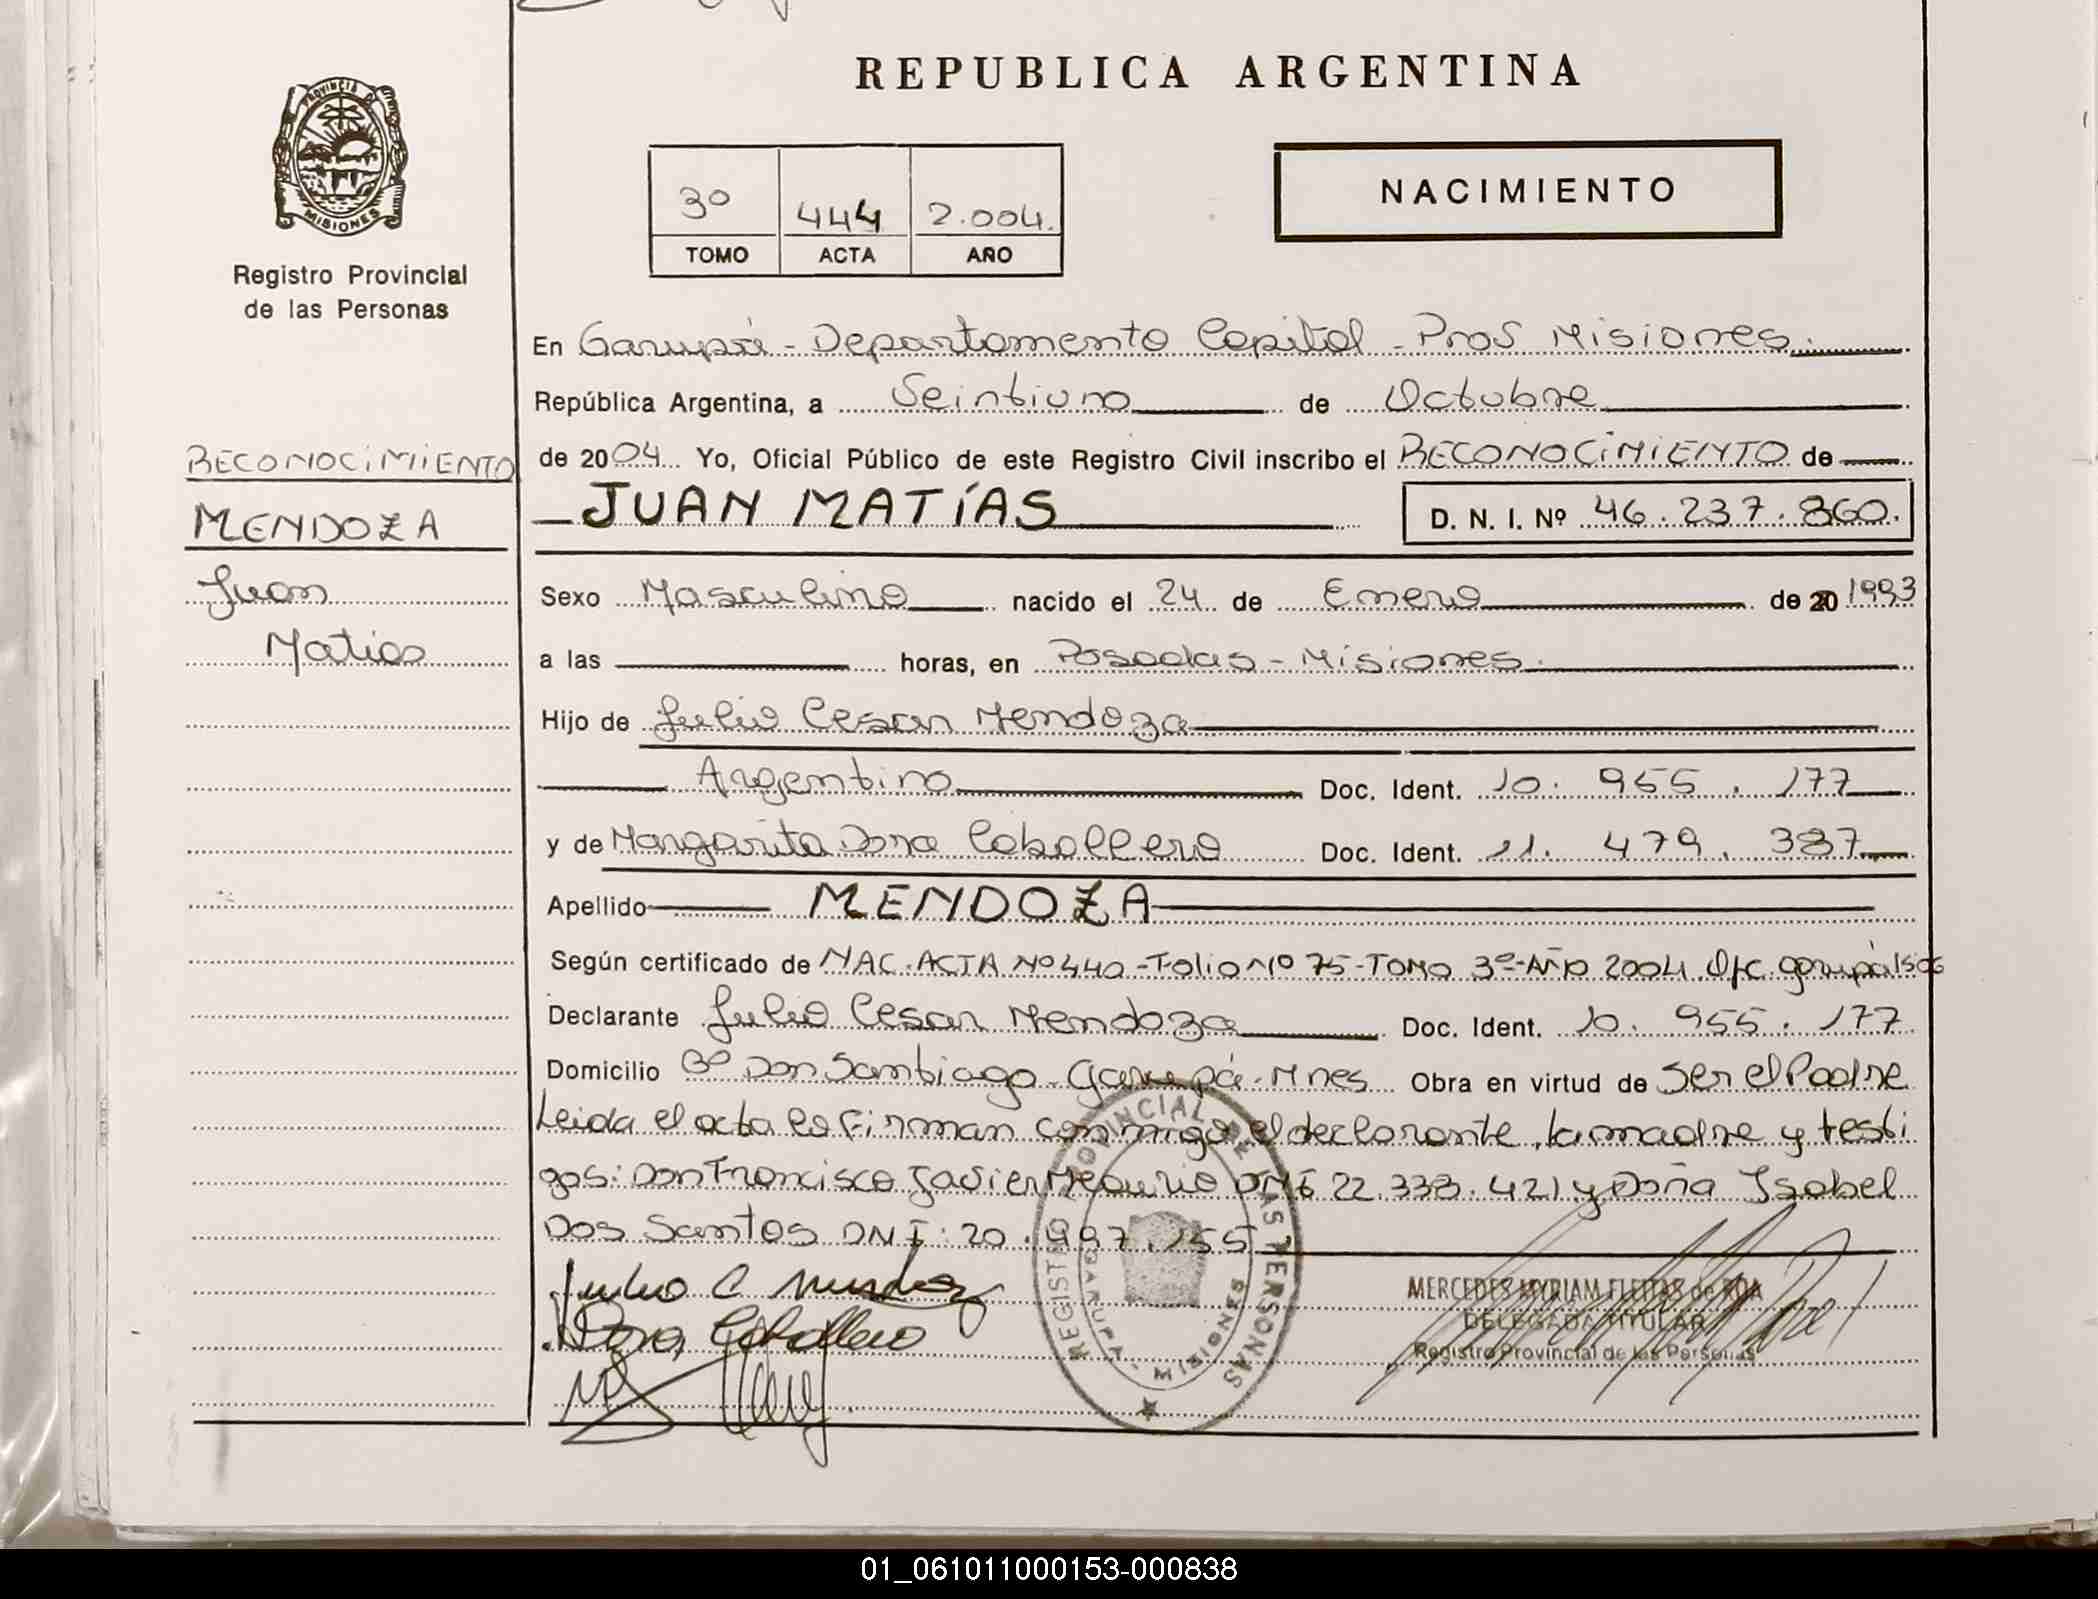 REPUBLICA ARGENTINA
PROVINCIA D MISIONES
Registro Provincial
de las Personas
3º 444 2.004.
TOMO ACTA AÑO
NACIMIENTO
En Garupá - Departamento Capital - Pros Misiones.
República Argentina, a Veintiuno de Octubre
de 2004 Yo, Oficial Público de este Registro Civil inscribo el RECONOCIMIENTO de
JUAN MATÍAS D. N. I. Nº 46.237.860.
RECONOCIMIENTO
MENDOZA
Juan
Matias
Sexo Masculino nacido el 24 de Enero de 20 1993
a las horas, en Posadas - Misiones.
Hijo de Julio Cesar Mendoza
Argentino Doc. Ident. 10. 955. 177
y de Margarita Dora Caballero Doc. Ident. 11. 479. 387
Apellido MENDOZA
Según certificado de NAC. ACTA Nº 440 - Folio Nº 75 - TOMO 3º - AÑO 2004 Ofc. garupá
Declarante Julio Cesar Mendoza Doc. Ident. 10. 955. 177
Domicilio Bº Don Santiago - Garupá - Mnes Obra en virtud de Ser el Padre
Leida el acta la firman conmigo el declarante, la madre y testi
gos: Don Francisco Javier DNI 22.333.421 y Doña Isabel
Dos Santos DNI: 20.997.155
Julio C Mendoza
Dora Caballero
REGISTRO PROVINCIAL DE LAS PERSONAS
GARUPA - MISIONES
MERCEDES MYRIAM FLEITAS de ROA
DELEGADA TITULAR
Registro Provincial de las Personas
01_061011000153-000838